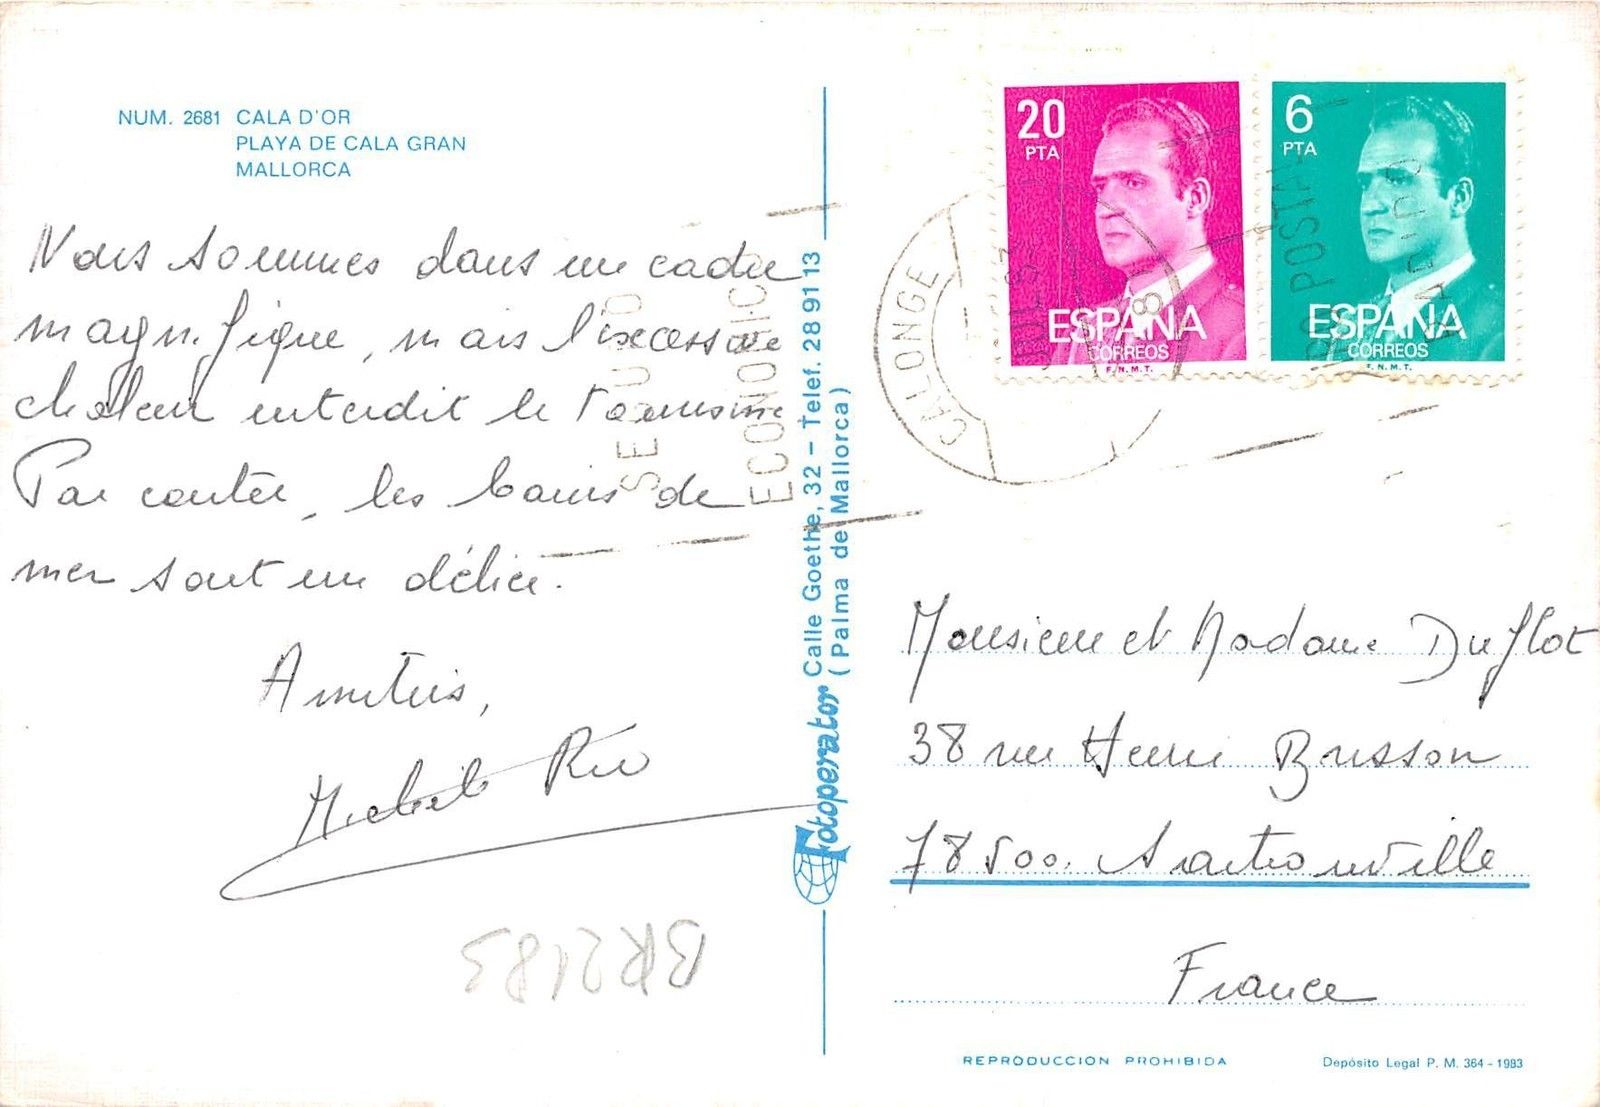 NUM. 2681 CALA D'OR
PLAYA DE CALA GRAN
MALLORCA
Nous sommes dans un cadre
magnifique, mais l'excessive
chaleur interdit le tourisme
Par contre, les bains de
mer sont un délice.
Amitiés,
Michèle
Fotoperator Calle Goethe, 32 - Telef. 28 91 13
(Palma de Mallorca)
20
PTA
ESPAÑA
CORREOS
F.N.M.T.
6
PTA
ESPAÑA
CORREOS
F.N.M.T.
CALONGE
POSTAL
ECONOMIC
Monsieur et Madame Duflot
38 rue Henri Brisson
78500. Sartrouville
France
BR2183
REPRODUCCION PROHIBIDA
Depósito Legal P. M. 364-1983